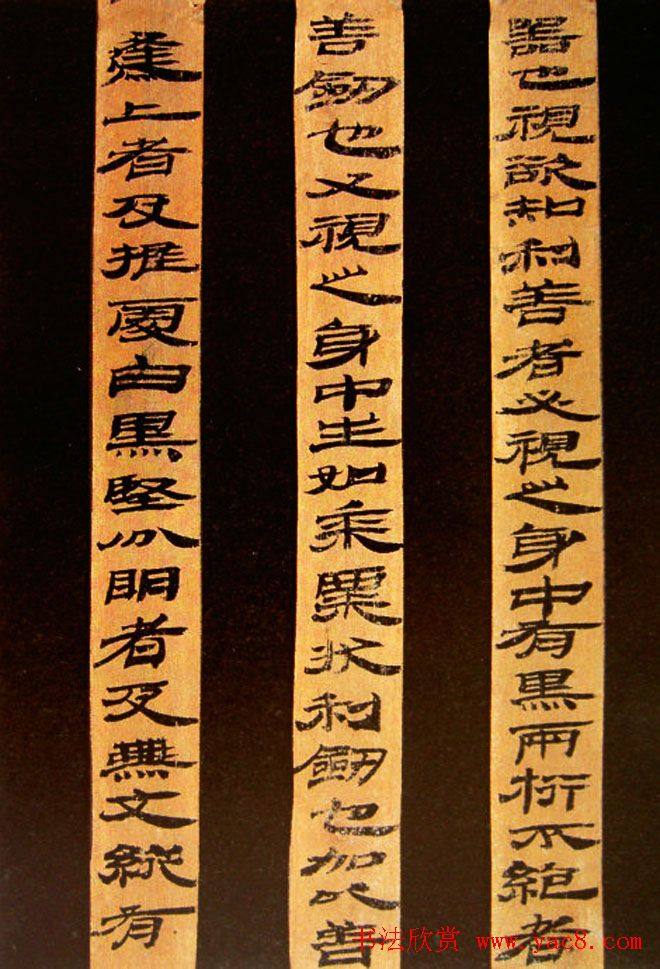 器也視欲知利善者必視之身中有黑兩桁不絕者
善劍也又視之身中生如黍粟狀利劍也加以善
上者及推處白黑堅分明者及無文縱有
书法欣赏 www.yac8.com